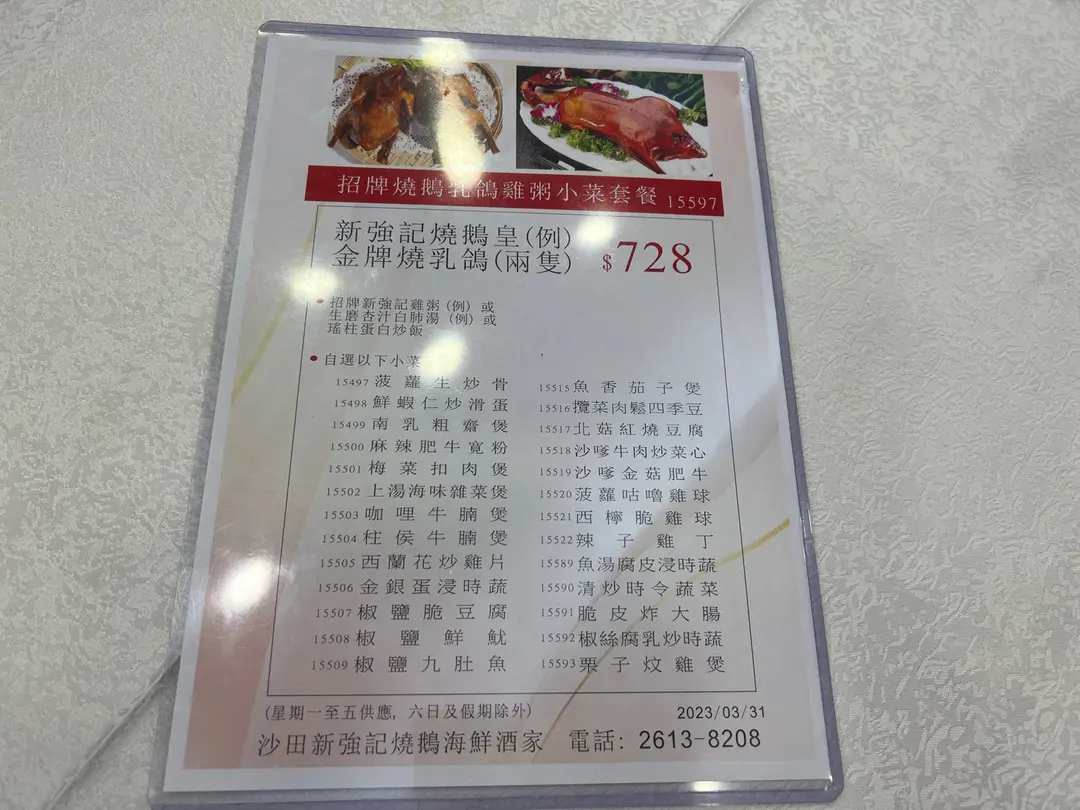 招牌燒鵝乳鴿雞粥小菜套餐 15597
新強記燒鵝皇(例)
金牌燒乳鴿(兩隻) $728
招牌新強記雞粥(例)或
生磨杏汁白肺湯(例)或
瑤柱蛋白炒飯
自選以下小菜
15497 菠蘿生炒骨
15498 鮮蝦仁炒滑蛋
15499 南乳粗齋煲
15500 麻辣肥牛寬粉
15501 梅菜扣肉煲
15502 上湯海味雜菜煲
15503 咖哩牛腩煲
15504 柱侯牛腩煲
15505 西蘭花炒雞片
15506 金銀蛋浸時蔬
15507 椒鹽脆豆腐
15508 椒鹽鮮魷
15509 椒鹽九肚魚
15515 魚香茄子煲
15516 攬菜肉鬆四季豆
15517 北菇紅燒豆腐
15518 沙嗲牛肉炒菜心
15519 沙嗲金菇肥牛
15520 菠蘿咕嚕雞球
15521 西檸脆雞球
15522 辣子雞丁
15589 魚湯腐皮浸時蔬
15590 清炒時令蔬菜
15591 脆皮炸大腸
15592 椒絲腐乳炒時蔬
15593 栗子炆雞煲
(星期一至五供應, 六日及假期除外) 2023/03/31
沙田新強記燒鵝海鮮酒家 電話: 2613-8208